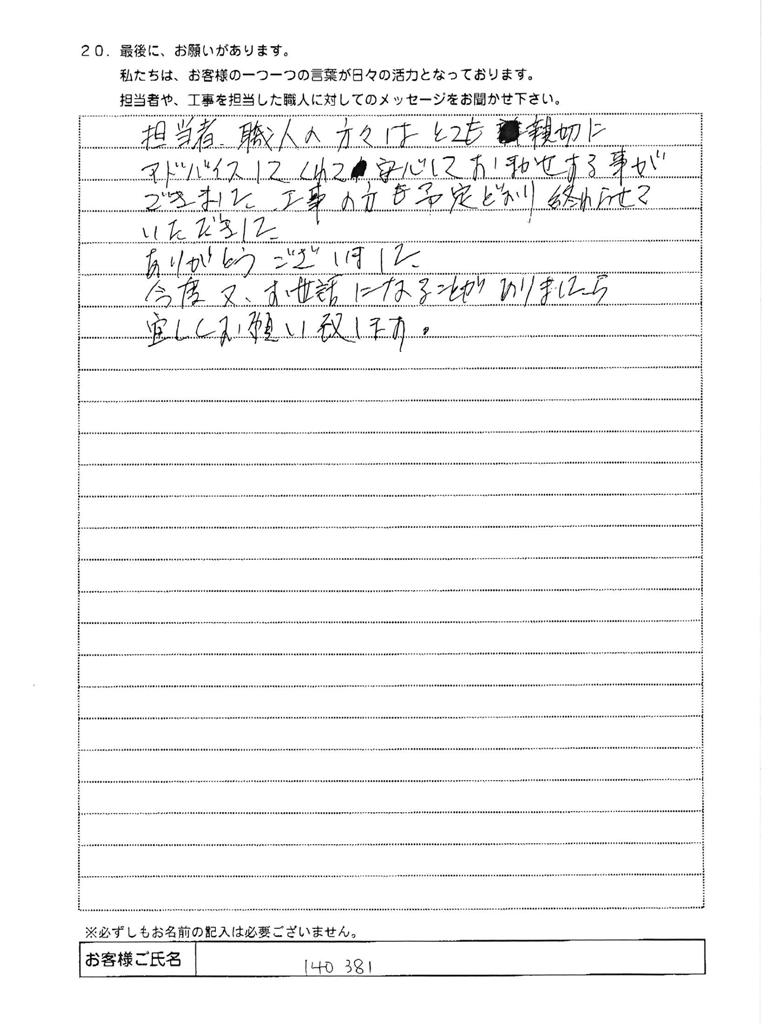 20．最後に、お願いがあります。
私たちは、お客様の一つ一つの言葉が日々の活力となっております。
担当者や、工事を担当した職人に対してのメッセージをお聞かせ下さい。
担当者、職人の方々はとても親切に
アドバイスしてくれて安心しておまかせする事が
できました 工事の方も予定どおり終わらせて
いただきした
ありがとうございました
今度又、お世話になることがありましたら
宜しくお願い致します。
※必ずしもお名前の記入は必要ございません。
お客様ご氏名
140 381